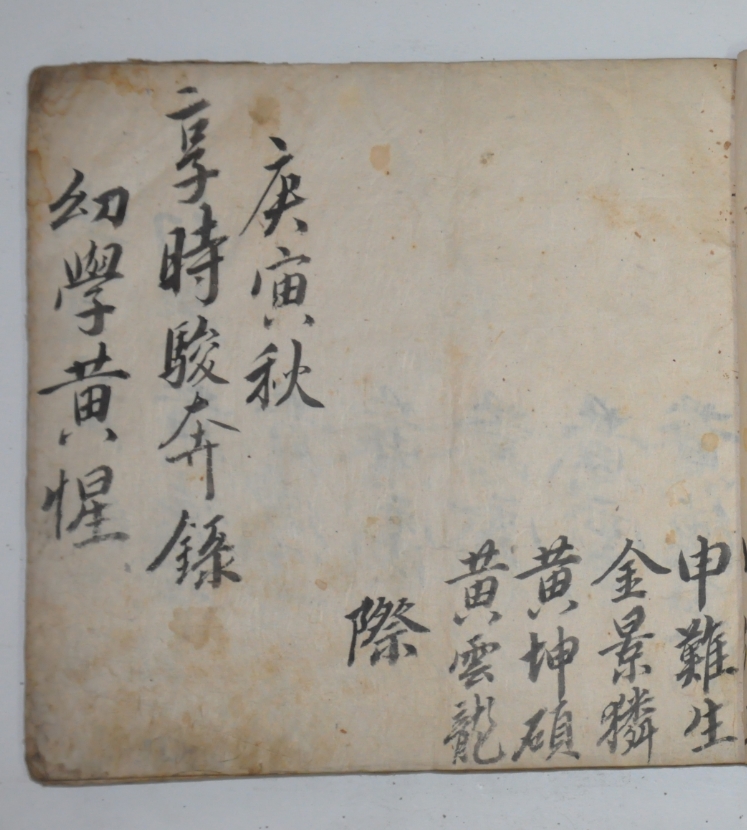 申難生
金景獜
黄坤碩
黄雲龍
際
庚寅秋
享時駿奔錄
幼學黄惺